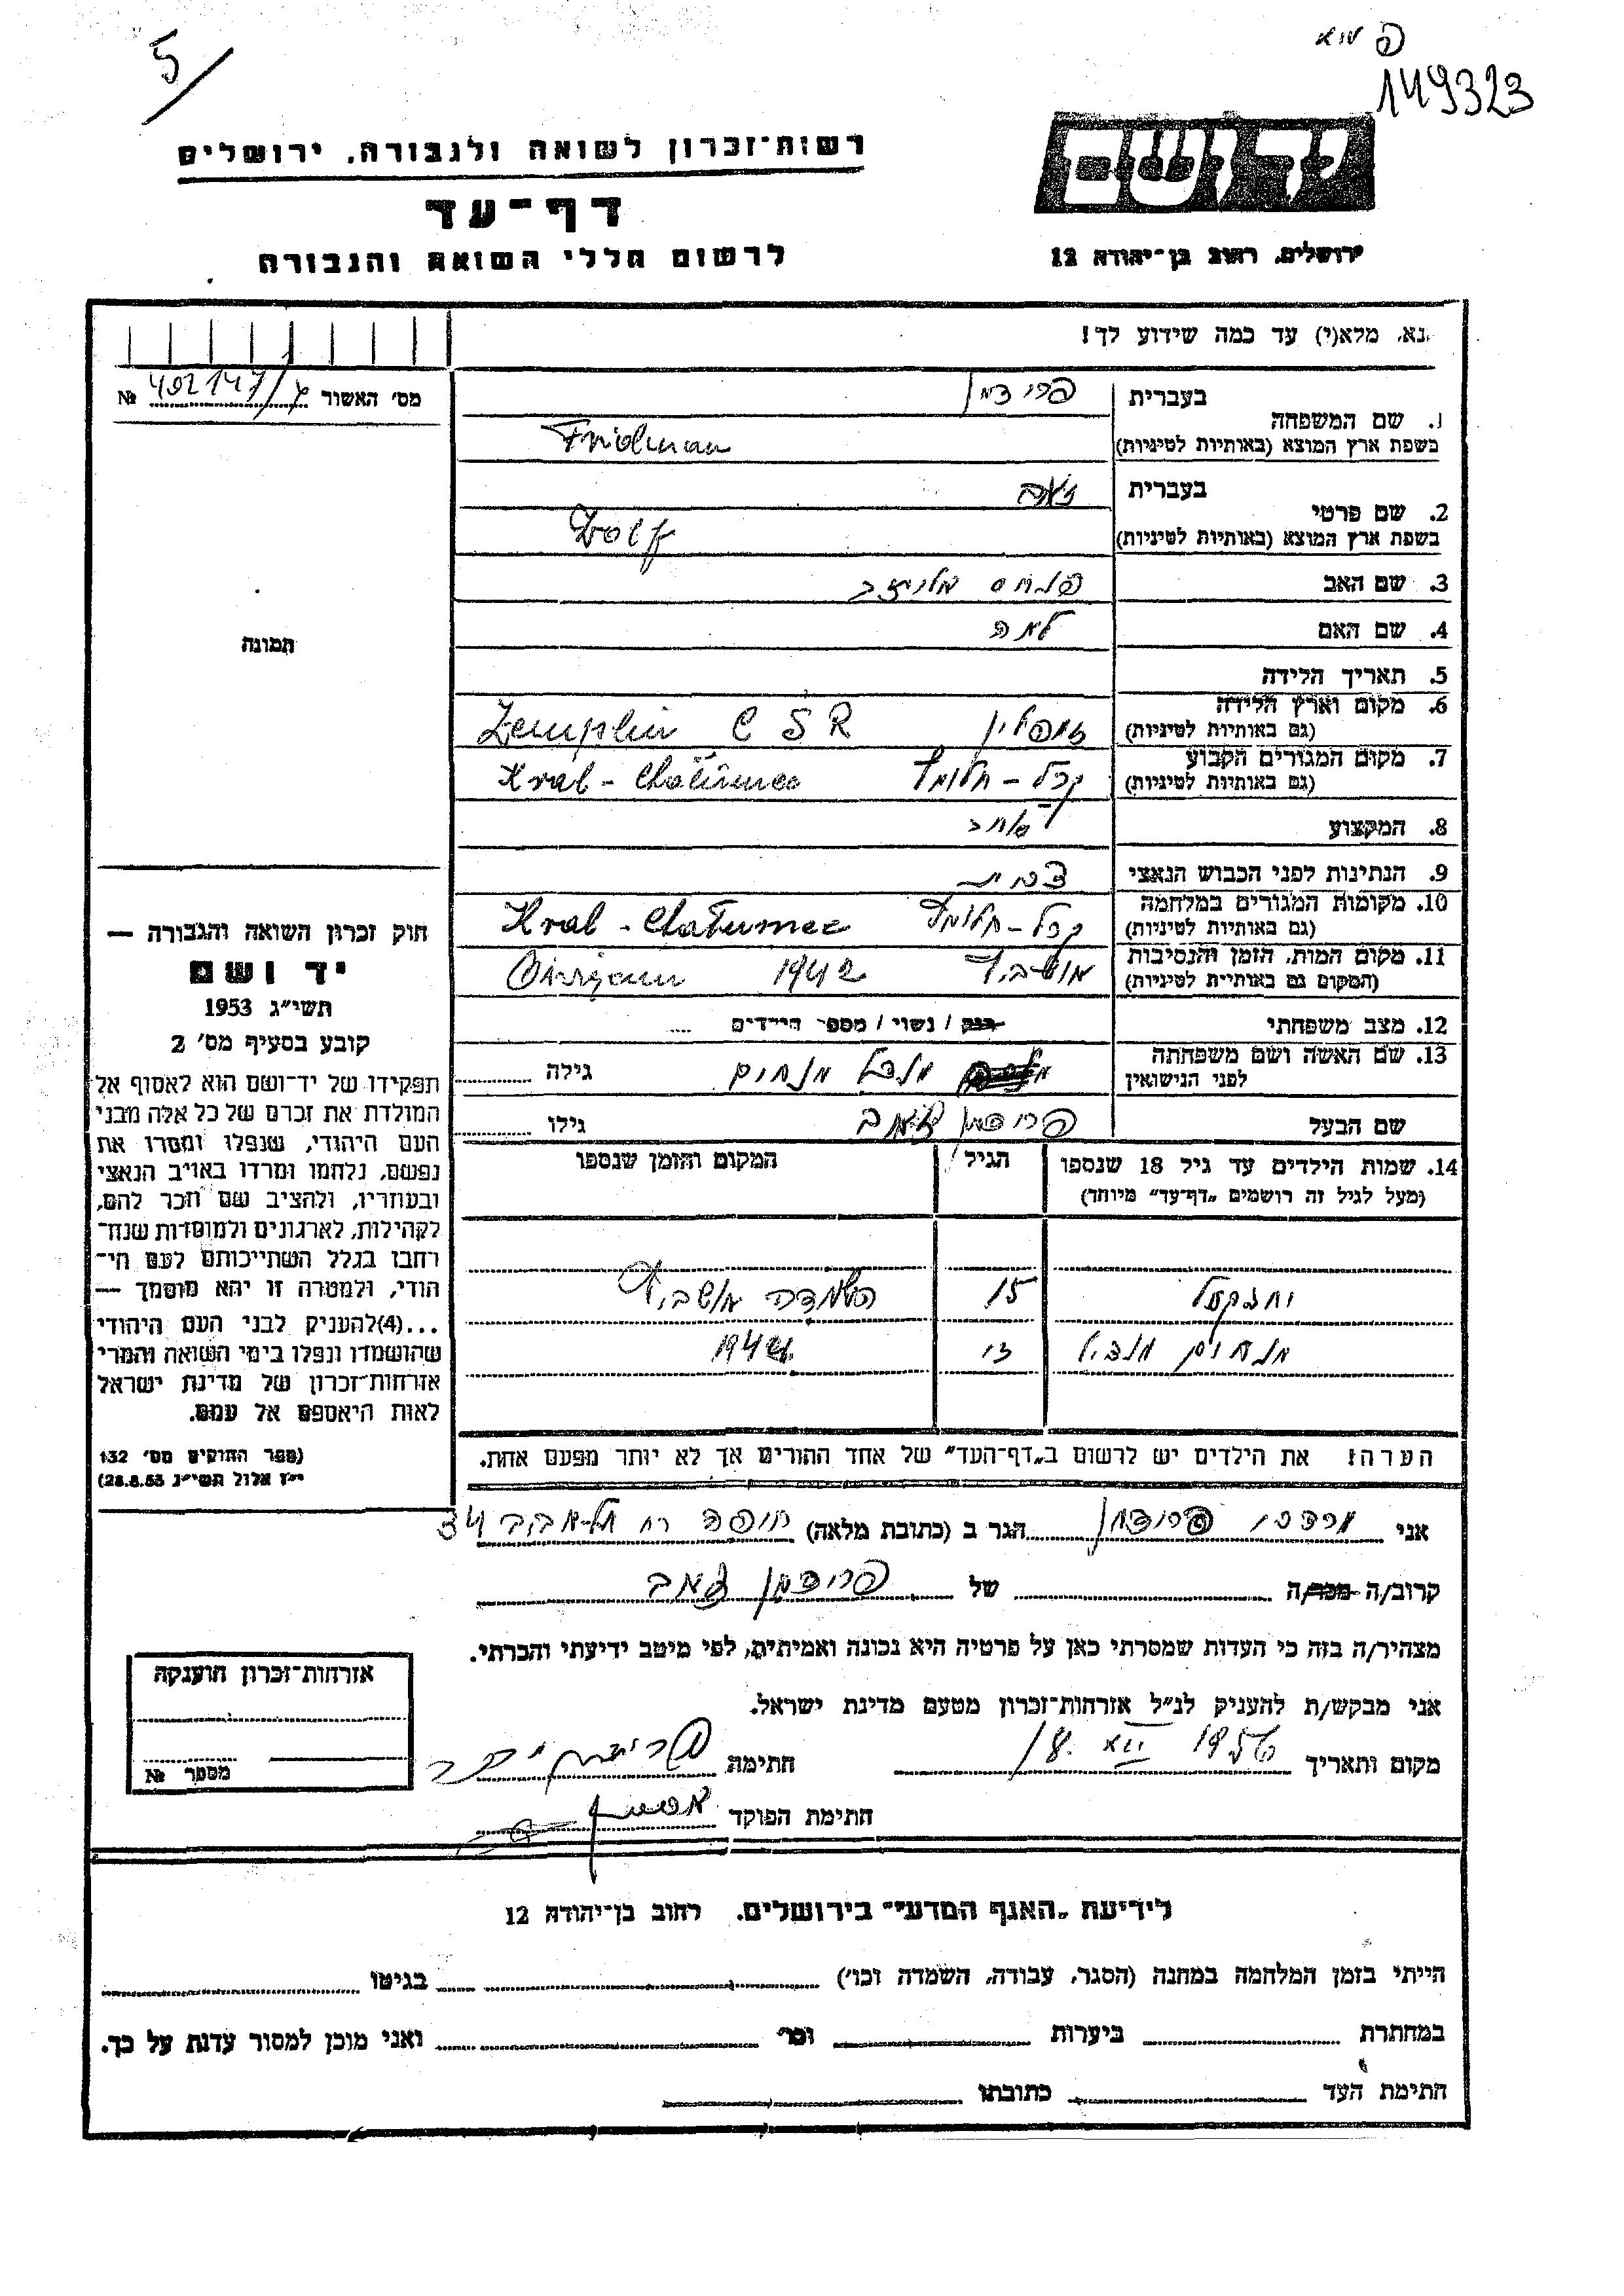 5/
149323
רשות־זכרון לשואה ולגבורה, ירושלים
דף־עד
לרשום חללי השואה והגבורה
יד ושם
ירושלים, רחוב בן־יהודה 12
נא, מלא(י) עד כמה שידוע לך!
מס׳ האשור № 402147/
1. שם המשפחה
בעברית פרידמן
בשפת ארץ המוצא (באותיות לטיניות) Fridman
2. שם פרטי
בעברית זאב
בשפת ארץ המוצא (באותיות לטיניות)
3. שם האב פנחס
4. שם האם לאה
5. תאריך הלידה
6. מקום וארץ הלידה
(גם באותיות לטיניות) זמפלין Zemplin C S R
7. מקום המגורים הקבוע
(גם באותיות לטיניות) קרל - חלומץ Kral - Chatumec
8. המקצוע
9. הנתינות לפני הכבוש הנאצי צ׳כית
10. מקומות המגורים במלחמה
(גם באותיות לטיניות) קרל - חלומץ Kral - Chatumec
11. מקום המות, הזמן והנסיבות
(המקום גם באותיות לטיניות) אושביץ 1942
12. מצב משפחתי רווק / נשוי / מספר הילדים ....
13. שם האשה ושם משפחתה
לפני הנישואין מנחם גילה
שם הבעל פרידמן זאב גילו
14. שמות הילדים עד גיל 18 שנספו
(מעל לגיל זה רושמים „דף־עד״ מיוחד)
הגיל
המקום והזמן שנספו
יחזקאל 15 השמדה אושביץ
מנחם 13
הערה: את הילדים יש לרשום ב„דף־העד״ של אחד ההורים אך לא יותר מפעם אחת.
תמונה
חוק זכרון השואה והגבורה —
יד ושם
תשי״ג 1953
קובע בסעיף מס׳ 2
תפקידו של יד־ושם הוא לאסוף אל
המולדת את זכרם של כל אלה מבני
העם היהודי, שנפלו ומסרו את
נפשם, נלחמו ומרדו באויב הנאצי
ובעוזריו, ולהציב שם וזכר להם,
לקהילות, לארגונים ולמוסדות שנח־
רבו בגלל השתייכותם לעם הי־
הודי, ולמטרה זו יהא מוסמך —
...(4)להעניק לבני העם היהודי
שהושמדו ונפלו בימי השואה והמרי
אזרחות־זכרון של מדינת ישראל
לאות היאספם אל עמם.
(ספר החוקים מס׳ 132
י״ז אלול תשי״ג 28.8.53)
אני מרדכי פרידמן הגר ב (כתובת מלאה) חיפה רח תל-אביב 34
קרוב/ה מכר/ה של פרידמן זאב
מצהיר/ה בזה כי העדות שמסרתי כאן על פרטיה היא נכונה ואמיתית, לפי מיטב ידיעתי והכרתי.
אני מבקש/ת להעניק לנ״ל אזרחות־זכרון מטעם מדינת ישראל.
מקום ותאריך 18. 1956 חתימה
חתימת הפוקד
אזרחות־זכרון הוענקה
מספר №
לידיעת „האגף המדעי״ בירושלים, רחוב בן־יהודה 12
הייתי בזמן המלחמה במחנה (הסגר, עבודה, השמדה וכו׳) בגיטו
במחתרת ביערות וכו׳ ואני מוכן למסור עדות על כך.
חתימת העד כתובתו